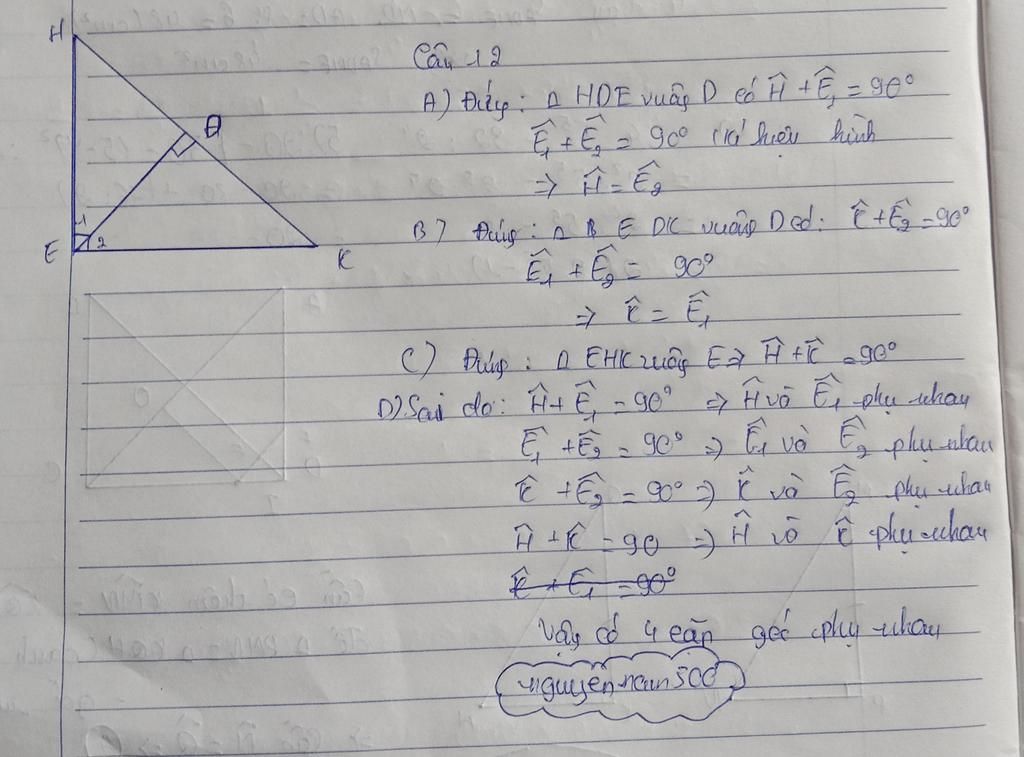 H
D
1
E
2
K
Câu 12
A) Đúng : Δ HDE vuông D có Ĥ + Ê₁ = 90°
Ê₁ + Ê₂ = 90° (kí hiệu hình
⇒ Ĥ = Ê₂
B) Đúng : Δ E DK vuông D có: K̂ + Ê₂ = 90°
Ê₁ + Ê₂ = 90°
⇒ K̂ = Ê₁
C) Đúng : Δ EHK vuông E ⇒ Ĥ + K̂ = 90°
D) Sai do: Ĥ + Ê₁ = 90° ⇒ Ĥ và Ê₁ phụ nhau
Ê₁ + Ê₂ = 90° ⇒ Ê₁ và Ê₂ phụ nhau
K̂ + Ê₂ = 90° ⇒ K̂ và Ê₂ phụ nhau
Ĥ + K̂ = 90 ⇒ Ĥ và K̂ phụ nhau
K̂ + Ê₁ = 90°
Vậy có 4 cặp góc phụ nhau
nguyennam500